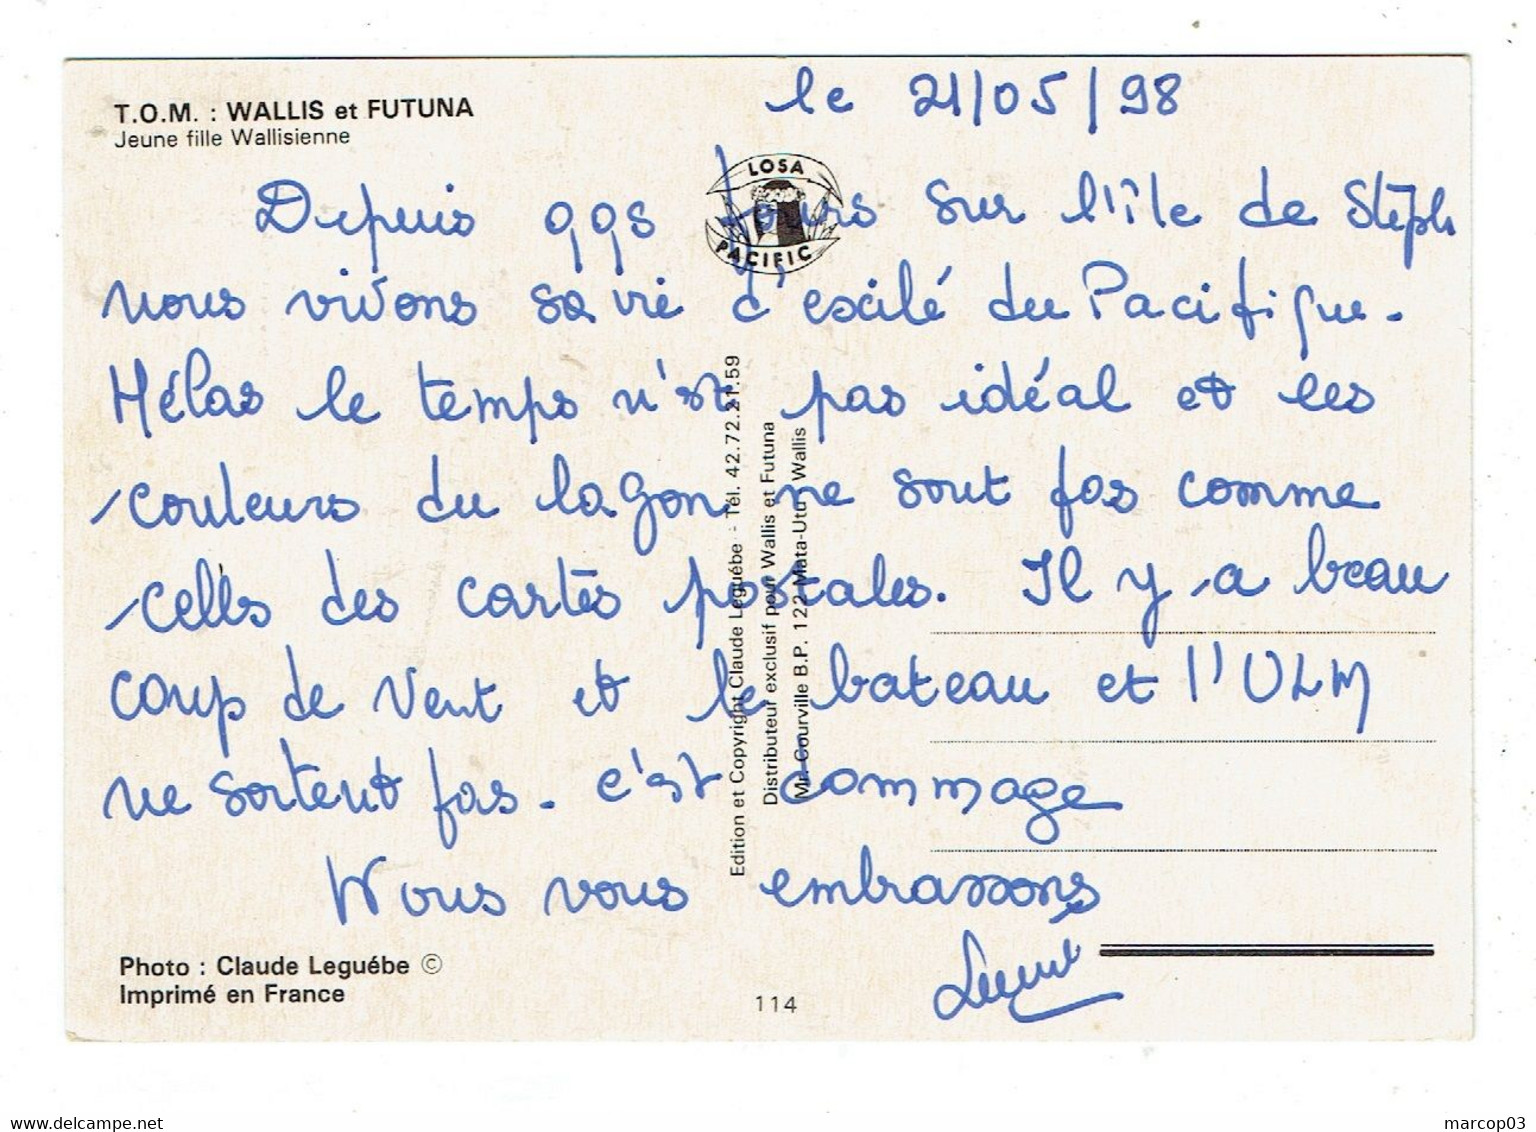 T.O.M. : WALLIS et FUTUNA
Jeune fille Wallisienne
le 21/05/98
LOSA
PACIFIC
Depuis qqs jours sur l'île de Stéph
nous vivons sa vie d'exilé du Pacifique.
Hélas le temps n'est pas idéal et les
couleurs du lagon ne sont pas comme
celles des cartes postales. Il y a beau
coup de vent et le bateau et l'ULM
ne sortent pas. c'est dommage
Nous vous embrassons
Edition et Copyright Claude Leguébe - Tél. 42.72.21.59
Distributeur exclusif pour Wallis et Futuna
Mr. Courville B.P. 122 Mata-Utu - Wallis
Photo : Claude Leguébe ©
Imprimé en France
114
marcop03